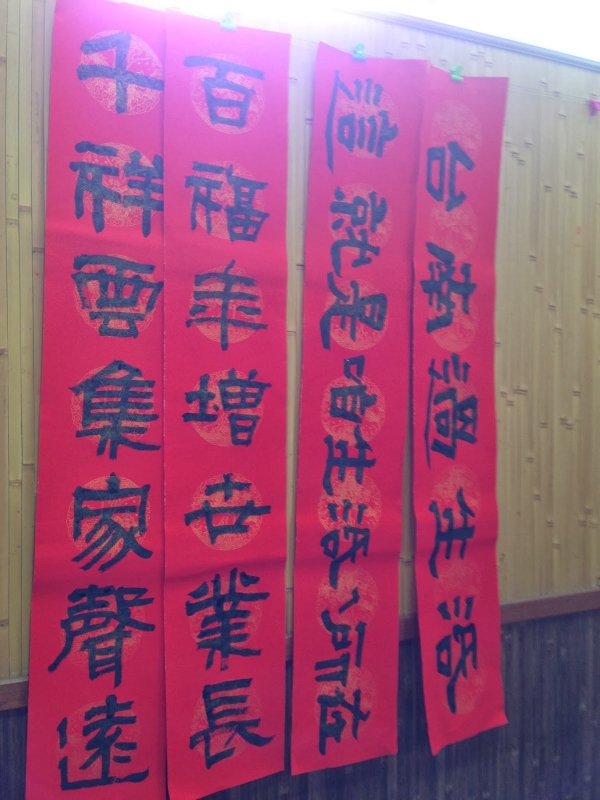 台南過生活
這就是咱生活ㄟ所在
百福年增世業長
千祥雲集家聲遠